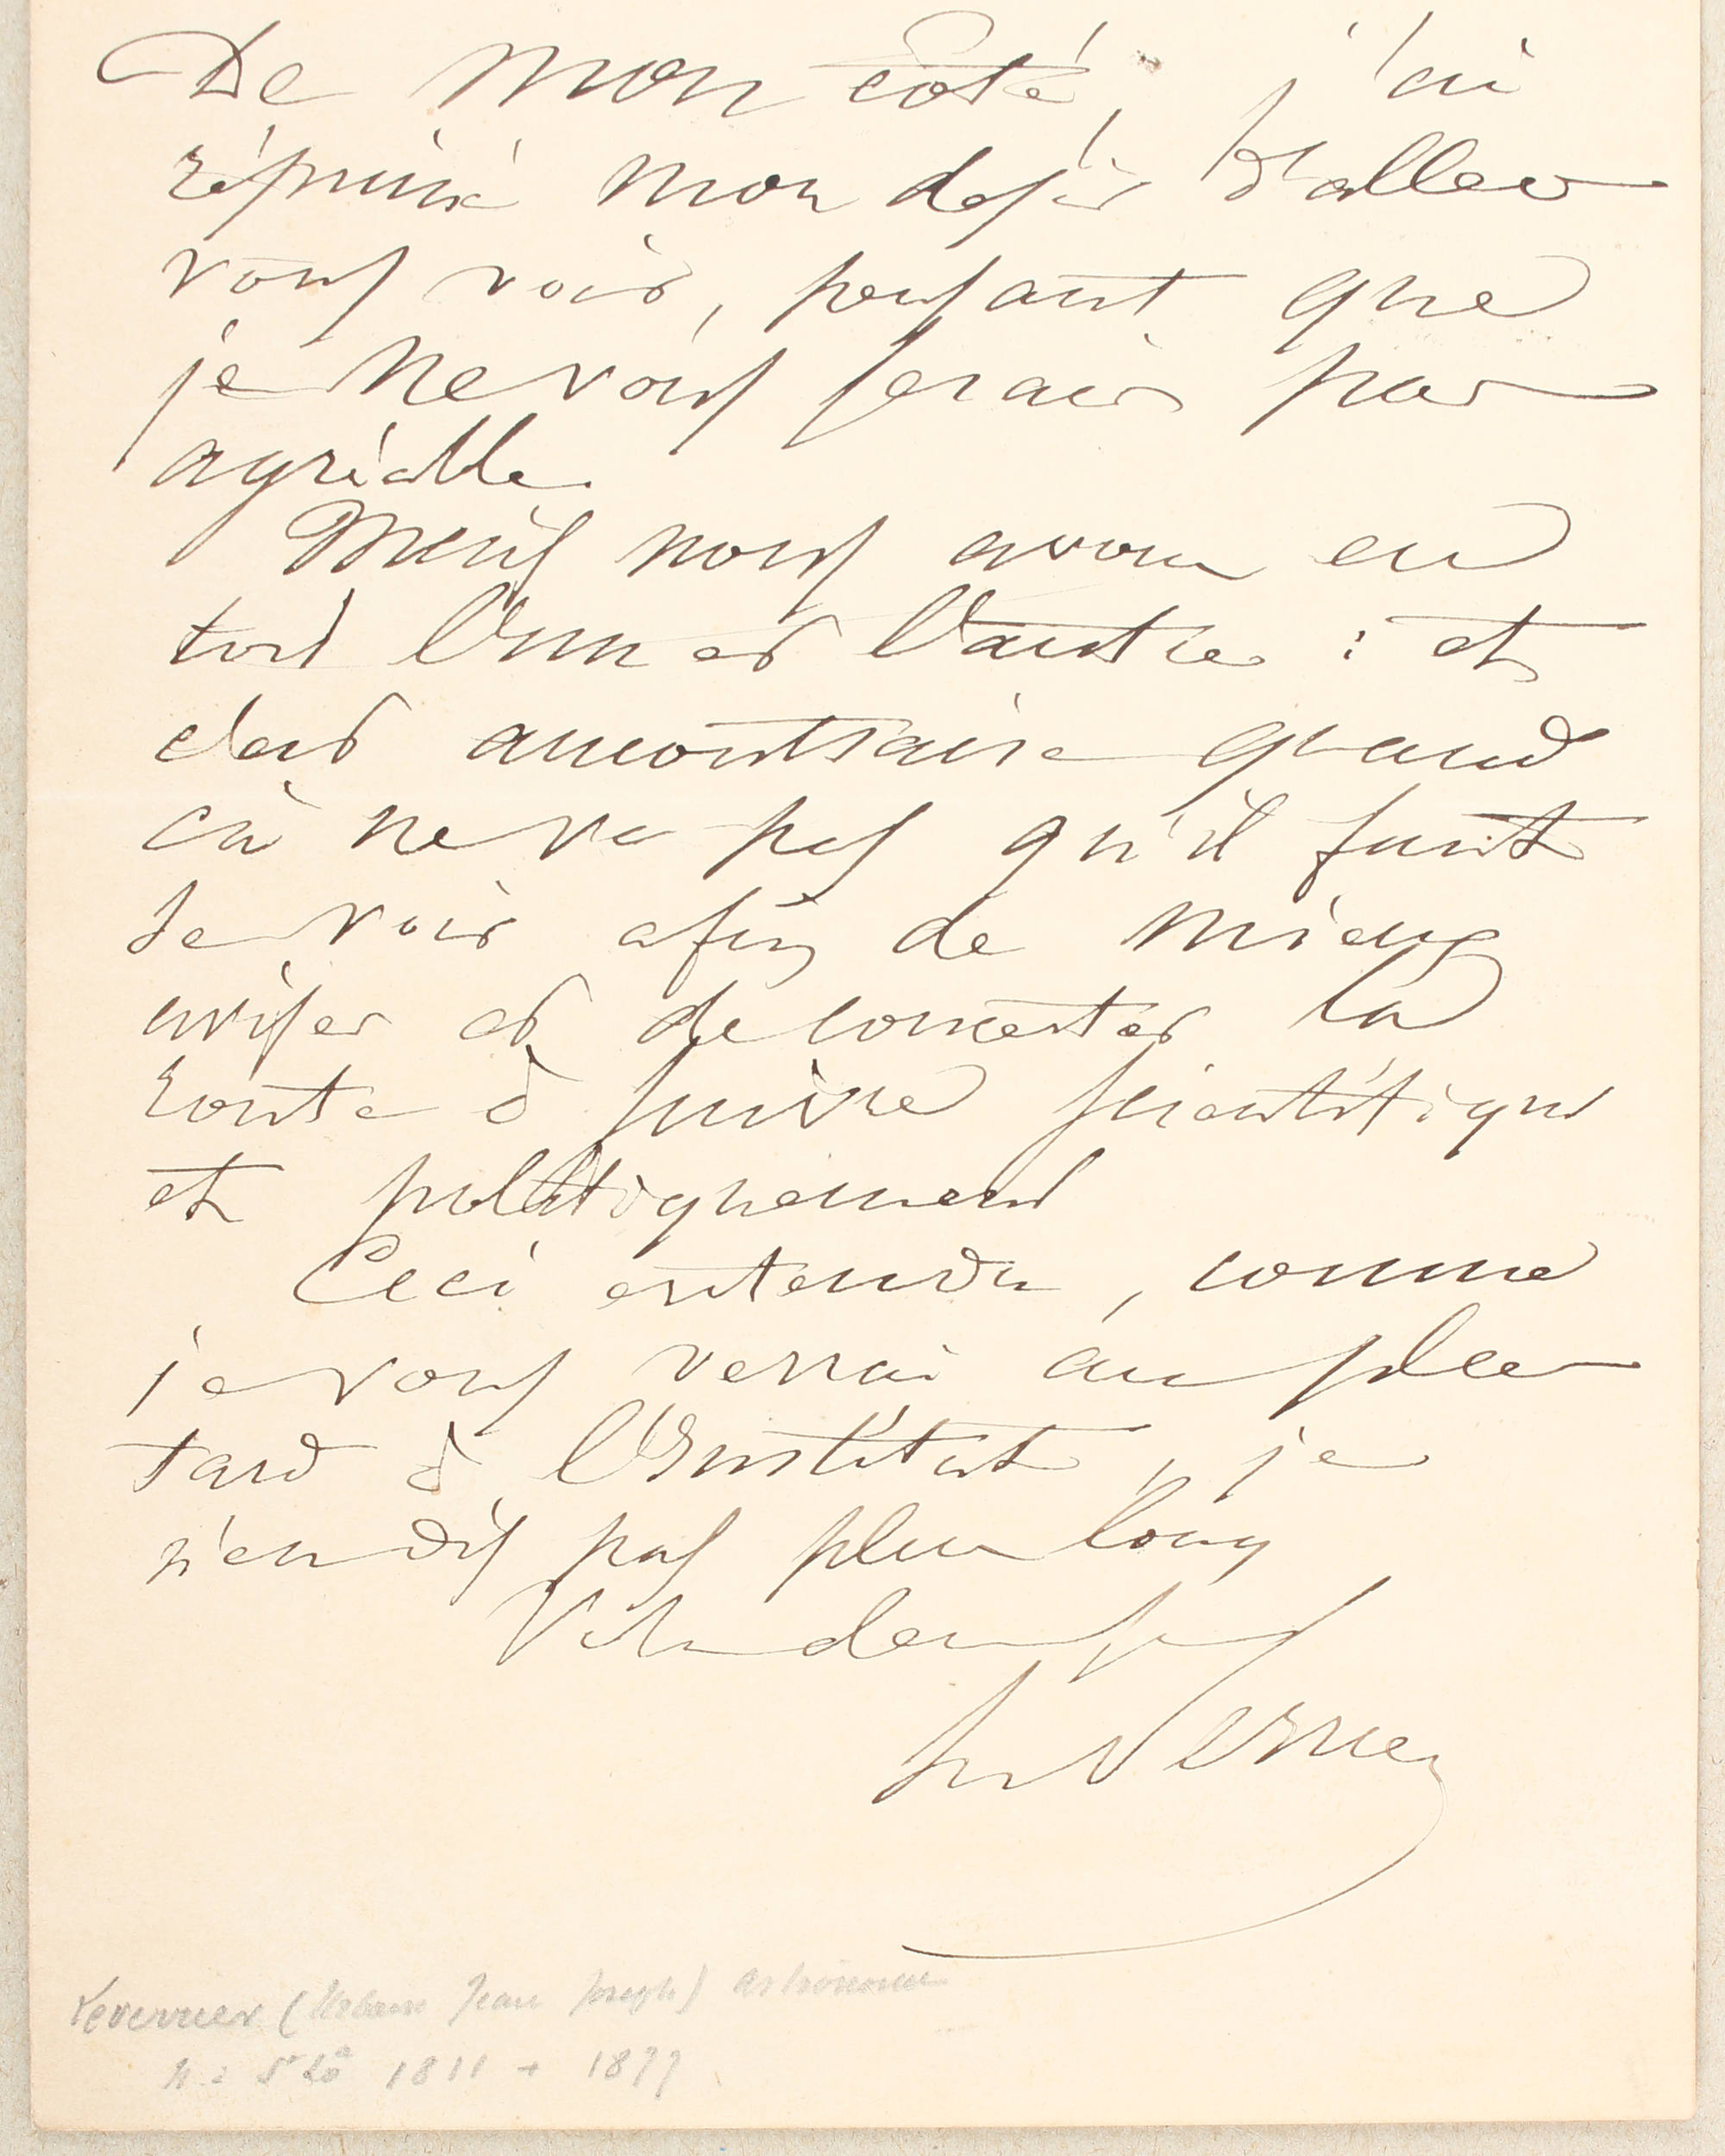 De mon côté, j'ai
réprimé mon desir d'aller
vous voir, pensant que
je ne vous serais pas
agréable.
Mais nous avons eu
tort l'un et l'autre : et
c'est au contraire quand
çà ne va pas qu'il faut
se voir afin de mieux
aviser et de concerter la
route à suivre scientifiqu
et politiquement
Ceci entendu, comme
je vous verrai au plus
tard à l'Institut, je
n'en dis pas plus long
LeVerrier
Leverrier (Urbain Jean Joseph) astronome
n. à St Lô 1811 + 1877